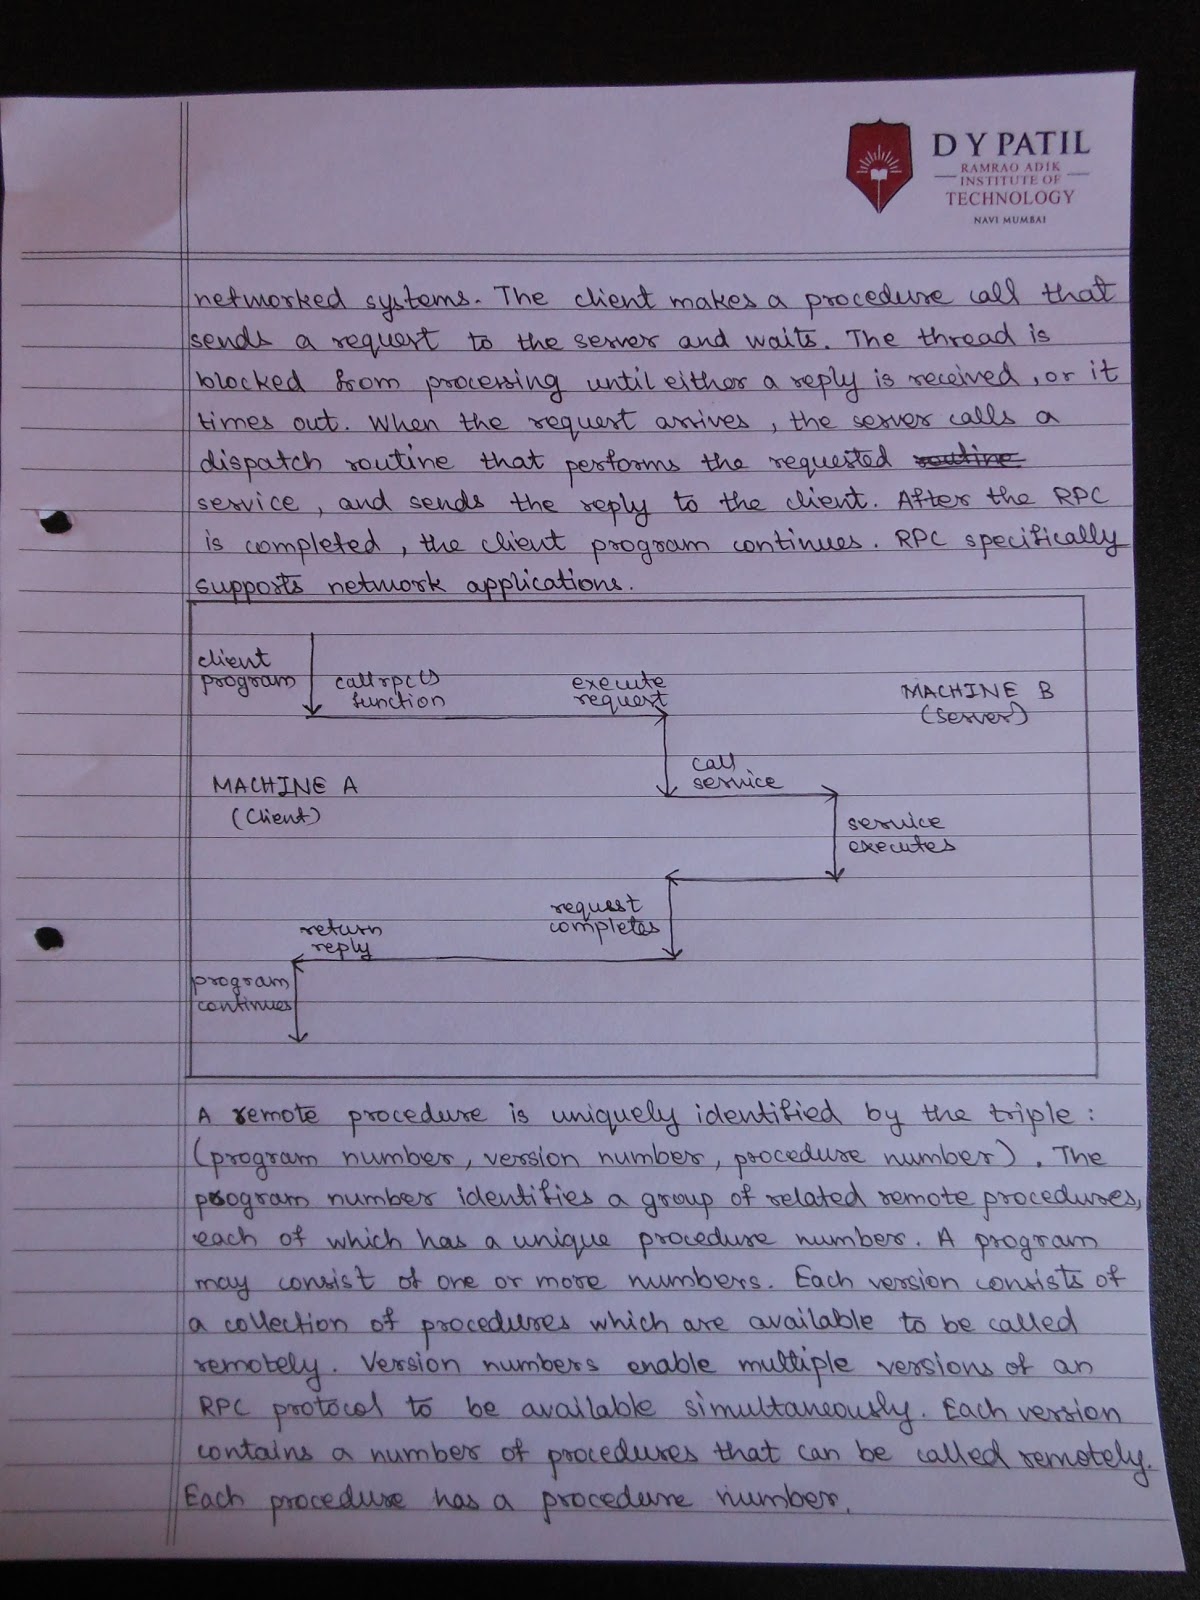 D Y PATIL
RAMRAO ADIK
INSTITUTE OF
TECHNOLOGY
NAVI MUMBAI
networked systems. The client makes a procedure call that
sends a request to the server and waits. The thread is
blocked from processing until either a reply is received, or it
times out. When the request arrives, the server calls a
dispatch routine that performs the requested routine
service, and sends the reply to the client. After the RPC
is completed, the client program continues. RPC specifically
supports network applications.
client
program
call rpc()
function
execute
request
MACHINE B
(Server)
call
service
MACHINE A
(Client)
service
executes
request
completes
return
reply
program
continues
A remote procedure is uniquely identified by the triple:
(program number, version number, procedure number). The
program number identifies a group of related remote procedures,
each of which has a unique procedure number. A program
may consist of one or more numbers. Each version consists of
a collection of procedures which are available to be called
remotely. Version numbers enable multiple versions of an
RPC protocol to be available simultaneously. Each version
contains a number of procedures that can be called remotely.
Each procedure has a procedure number.